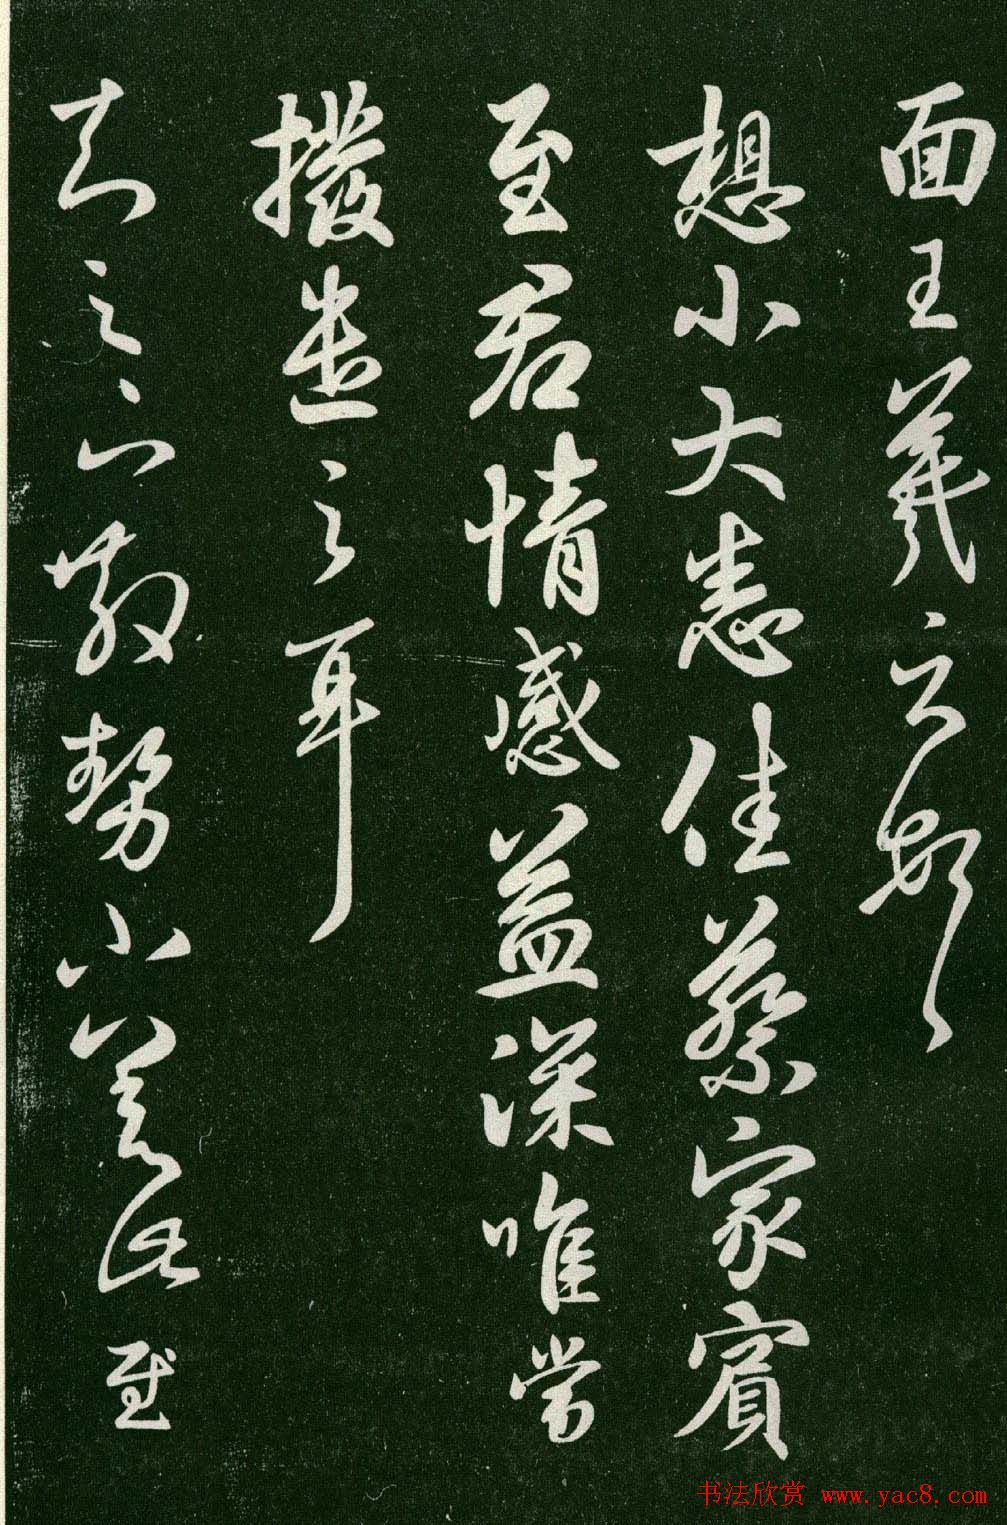 面王羲之頓
想小大悉佳蔡家賓
至君情感益深唯當
撥遣之耳
知足下散勢小差此慰